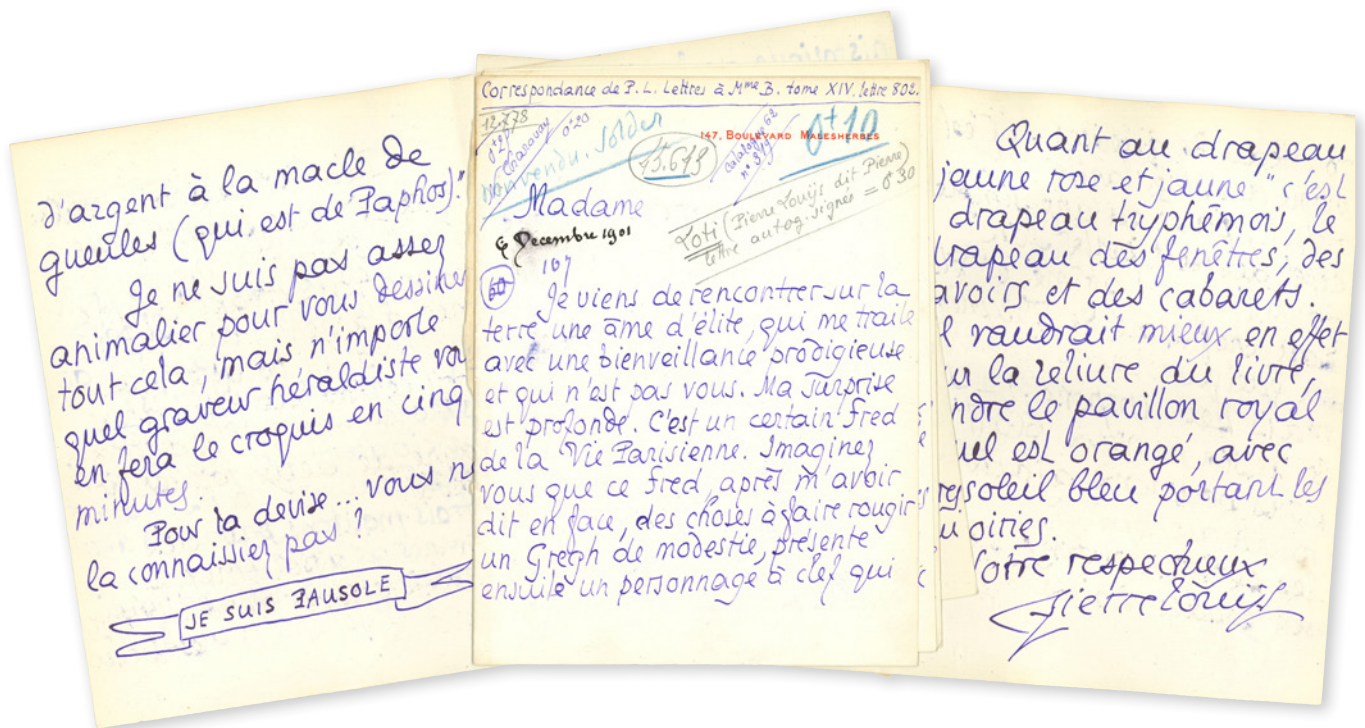 d'argent à la macle de
gueules (qui est de Paphos)."
Je ne suis pas assez
animalier pour vous dessiner
tout cela, mais n'importe
quel graveur héraldiste vou
en fera le croquis en cinq
minutes.
Pour la devise... vous n
la connaissiez pas ?
JE SUIS PAUSOLE
Correspondance de P. L. Lettres à Mme B. tome XIV. lettre 802.
12.778
Charavay
0+20
non vendu. Solder
15.613
Catalogue 62
0+10
147, BOULEVARD MALESHERBES
Madame
6 Decembre 1901
Loti (Pierre Louÿs dit Pierre)
lettre autog. signée = 0+30
60
107
Je viens de rencontrer sur la
terre une âme d'élite, qui me traite
avec une bienveillance prodigieuse
et qui n'est pas vous. Ma surprise
est profonde. C'est un certain Fred
de la Vie Parisienne. Imaginez
vous que ce Fred, après m'avoir
dit en face, des choses à faire rougir
un Gregh de modestie, présente
ensuite un personnage à clef qui
Quant au drapeau
jaune rose et jaune" c'est
drapeau tryphémois, le
drapeau des fenêtres, des
avoirs et des cabarets.
l vaudrait mieux en effet
ur la reliure du livre,
ndre le pavillon royal
uel est orangé, avec
soleil bleu portant les
oiries.
Votre respectueux
Pierre Louÿs